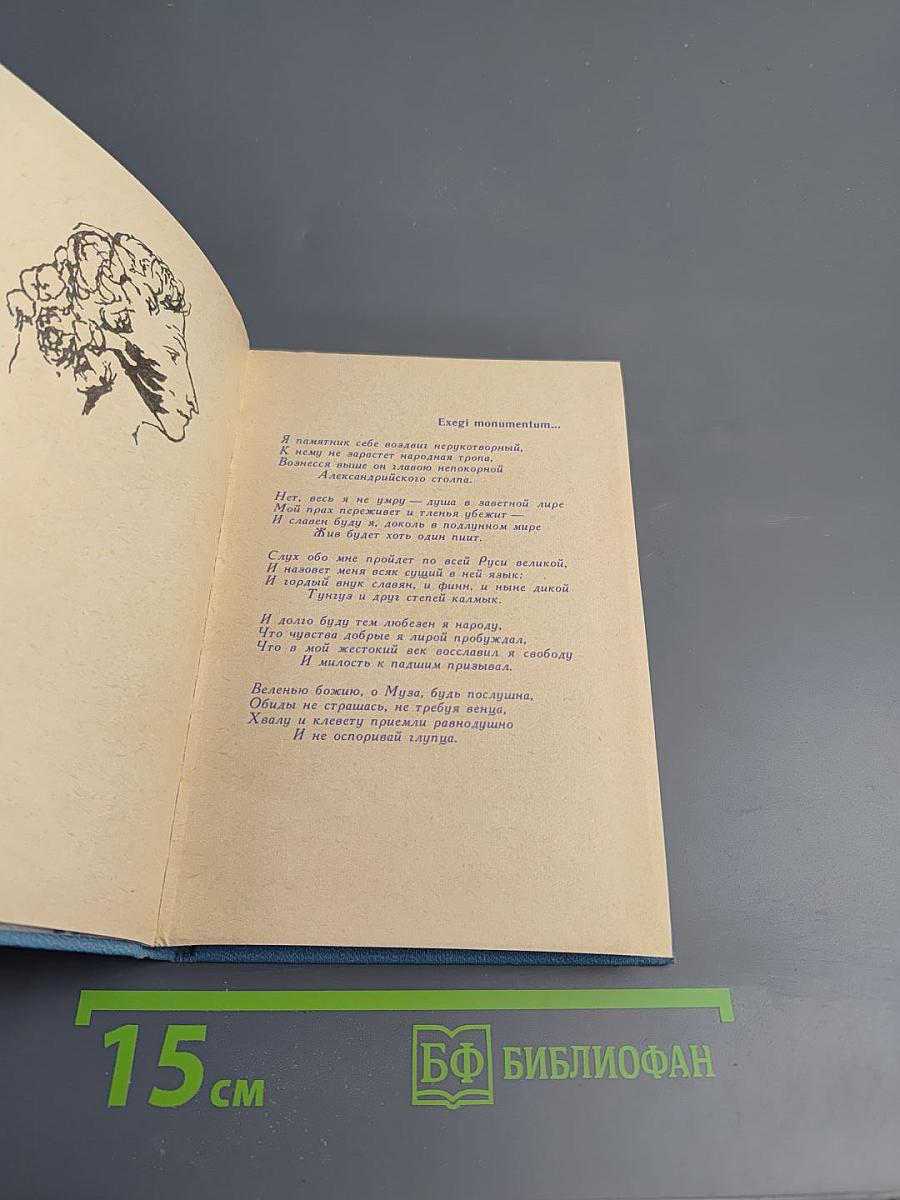 Exegi monumentum...
Я памятник себе воздвиг нерукотворный,
К нему не зарастет народная тропа,
Вознесся выше он главою непокорной
Александрийского столпа.
Нет, весь я не умру — душа в заветной лире
Мой прах переживет и тленья убежит —
И славен буду я, доколь в подлунном мире
Жив будет хоть один пиит.
Слух обо мне пройдет по всей Руси великой,
И назовет меня всяк сущий в ней язык:
И гордый внук славян, и финн, и ныне дикой
Тунгуз и друг степей калмык.
И долго буду тем любезен я народу,
Что чувства добрые я лирой пробуждал,
Что в мой жестокий век восславил я свободу
И милость к падшим призывал.
Веленью божию, о Муза, будь послушна,
Обиды не страшась, не требуя венца,
Хвалу и клевету приемли равнодушно
И не оспоривай глупца.
15 см
БФ БИБЛИОФАН